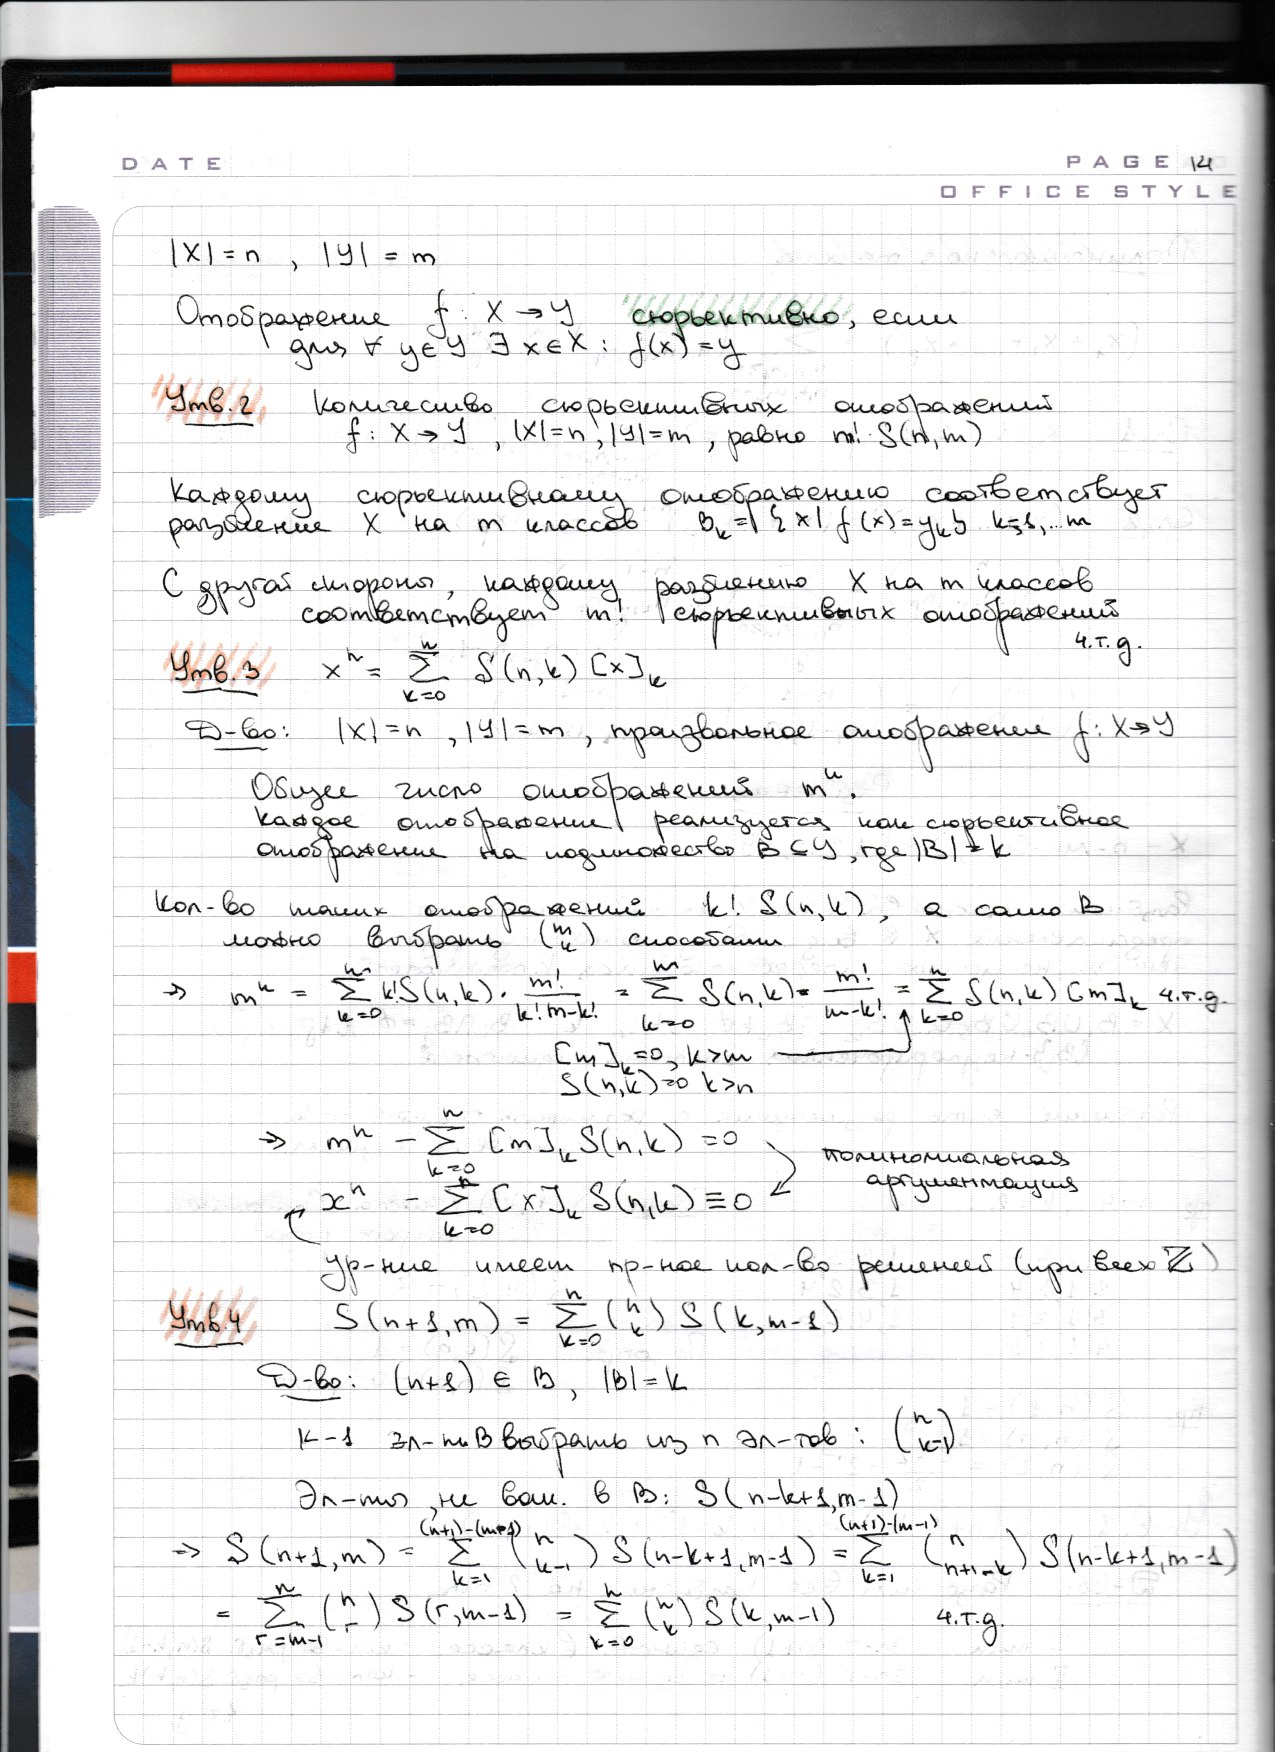 DATE
PAGE 14
OFFICE STYLE
|X| = n , |Y| = m
Отображение f : X → Y сюрьективно, если
для ∀ y ∈ Y ∃ x ∈ X : f(x) = y
Утв.2 Количество сюрьективных отображений
f : X → Y , |X| = n , |Y| = m , равно m! · S(n, m)
Каждому сюрьективному отображению соответствует
разбиение X на m классов B_k = { x | f(x) = y_k } k = 1, ... m
С другой стороны, каждому разбиению X на m классов
соответствует m! сюрьективных отображений
ч.т.д.
Утв.3 x^n = ∑_{k=0}^{n} S(n, k) [x]_k
Д-во: |X| = n , |Y| = m , произвольное отображение f : X → Y
Общее число отображений m^n .
Каждое отображение реализуется как сюрьективное
отображение на подмножество B ⊆ Y , где |B| = k
Кол-во таких отображений k! S(n, k) , а само B
можно выбрать (m k) способами
⇒ m^n = ∑_{k=0}^{m} k! S(n, k) · m!/(k! m-k!) = ∑_{k=0}^{m} S(n, k) · m!/(m-k!) = ∑_{k=0}^{n} S(n, k) [m]_k ч.т.д.
[m]_k = 0, k > m
S(n, k) = 0 k > n
⇒ m^n - ∑_{k=0}^{n} [m]_k S(n, k) = 0
полиномиальная
аргументация
x^n - ∑_{k=0}^{n} [x]_k S(n, k) ≡ 0
ур-ние имеет пр-ное кол-во решений (при всех ℤ)
Утв.4 S(n+1, m) = ∑_{k=0}^{n} (n k) S(k, m-1)
Д-во: (n+1) ∈ B , |B| = k
k-1 эл-т B выбрать из n эл-тов : (n k-1)
Эл-ты, не вош. в B: S(n-k+1, m-1)
⇒ S(n+1, m) = ∑_{k=1}^{(n+1)-(m-1)} (n k-1) S(n-k+1, m-1) = ∑_{k=1}^{(n+1)-(m-1)} (n n+1-k) S(n-k+1, m-1)
= ∑_{r=m-1}^{n} (n r) S(r, m-1) = ∑_{k=0}^{n} (n k) S(k, m-1) ч.т.д.